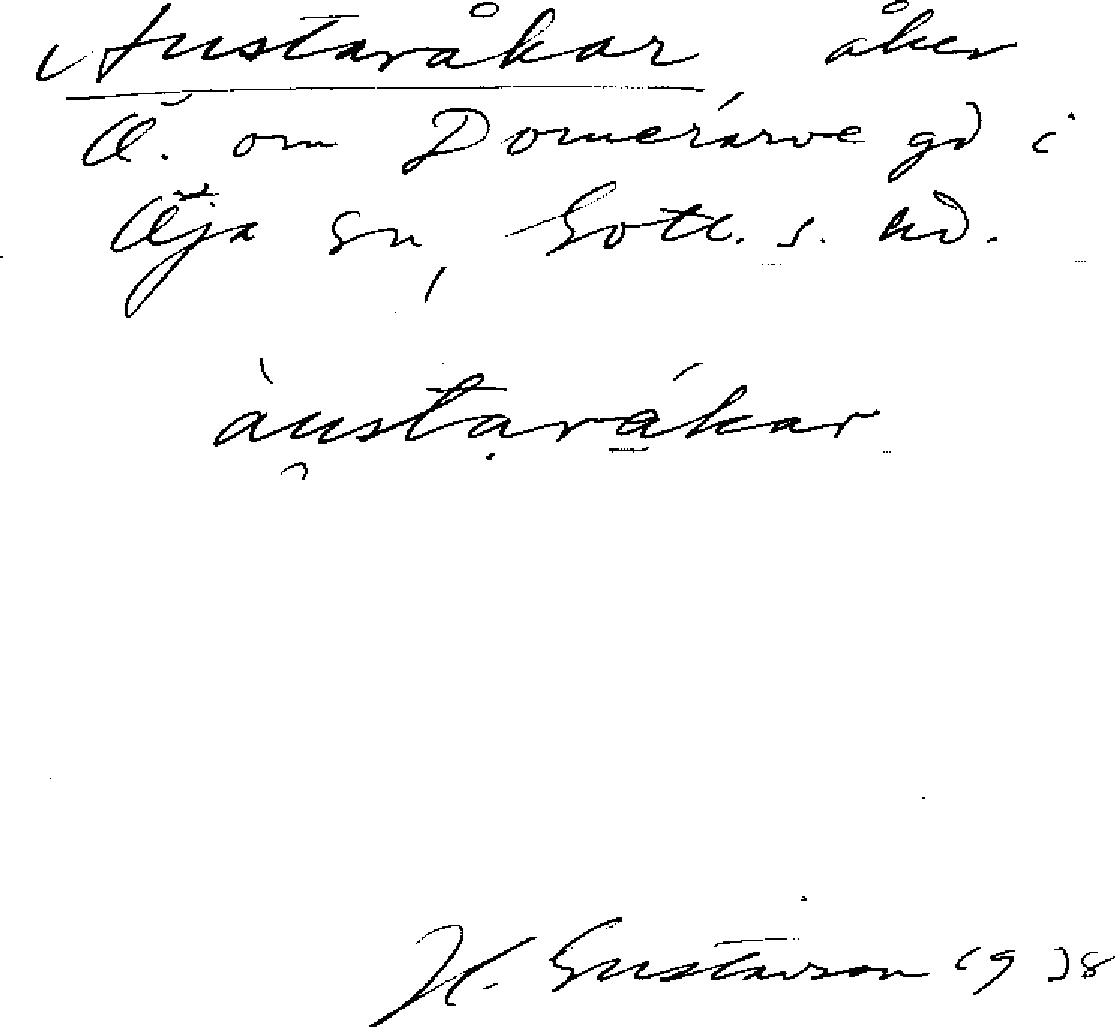 Austaråkar åker
Ö. om Domerarve gd i
Öja sn, Gotl. s. hd.
àustaråkar
H. Gustavson 1938